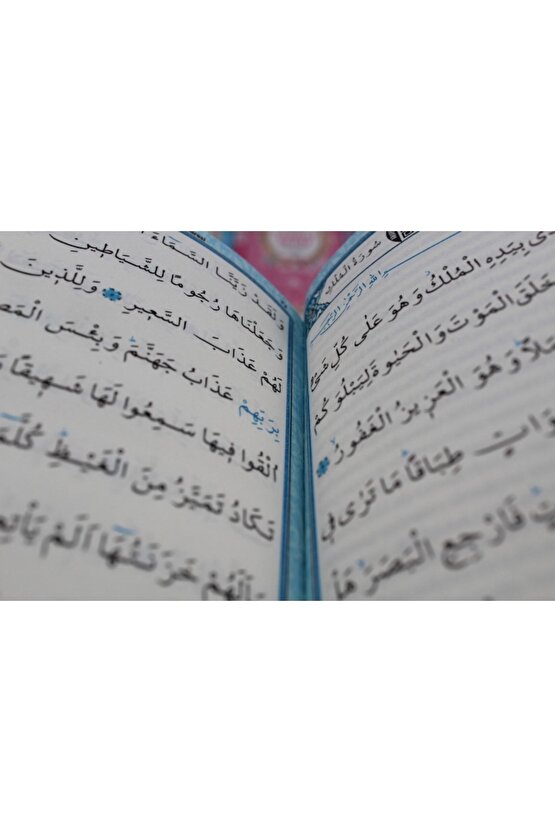 سُورَةُ الْمُلْكِ
اللّٰهِ الرَّحْمٰنِ الرَّحِيمِ
بِيَدِهِ الْمُلْكُ وَهُوَ عَلٰى كُلِّ شَىْ
خَلَقَ الْمَوْتَ وَالْحَيٰوةَ لِيَبْلُوَكُمْ
لًا وَهُوَ الْعَزِيزُ الْغَفُورُ
وَاتٍ طِبَاقًا مَا تَرٰى فِى
فَارْجِعِ الْبَصَرَ هَلْ
وَلَقَدْ زَيَّنَّا السَّمَاءَ
وَجَعَلْنَاهَا رُجُومًا لِلشَّيَاطِينِ
لَهُمْ عَذَابَ السَّعِيرِ وَلِلَّذِينَ
بِرَبِّهِمْ عَذَابُ جَهَنَّمَ وَبِئْسَ الْمَص
اُلْقُوا فِيهَا سَمِعُوا لَهَا شَهِيقًا وَ
تَكَادُ تَمَيَّزُ مِنَ الْغَيْظِ كُلَّمَا
سَاَلَهُمْ خَزَنَتُهَا اَلَمْ يَأْتِ